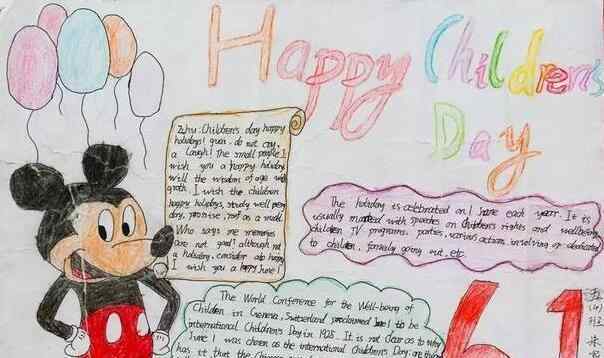 Happy Children's
Day
Children's day happy
holidays! guai. do not cry,
a Laugh! The small people I
wish you a happy holiday
will the wisdom of age with
I wish the children
happy holidays, study well every
day, promise, not on a wall
Who says me memories
are not good! although not
a holiday, consider also happy
I wish you a happy here!
The holiday is celebrated on 1 June each year. It is
usually marked with speeches on children's rights and wellbeing
children TV programs, parties, various actions involving or dedicated
to children, going out, etc.
The World Conference for the Well-being of
Children in Geneva, Switzerland proclaimed June 1 to be
International Children's Day in 1925. It is not clear as to why
June 1 was chosen as the international Children's Day:
has it that the Chinese
61